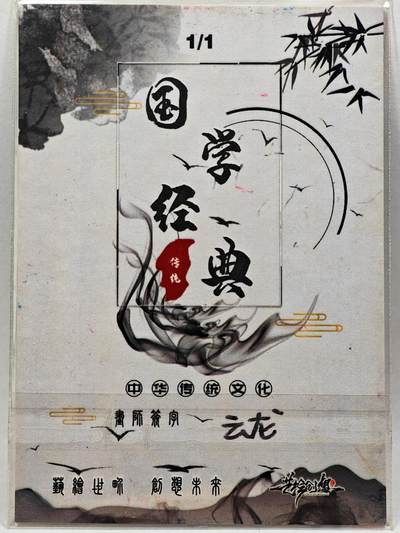 1/1
国学经典
传统
中华传统文化
画师签字
云龙
艺绘世界 创想未来